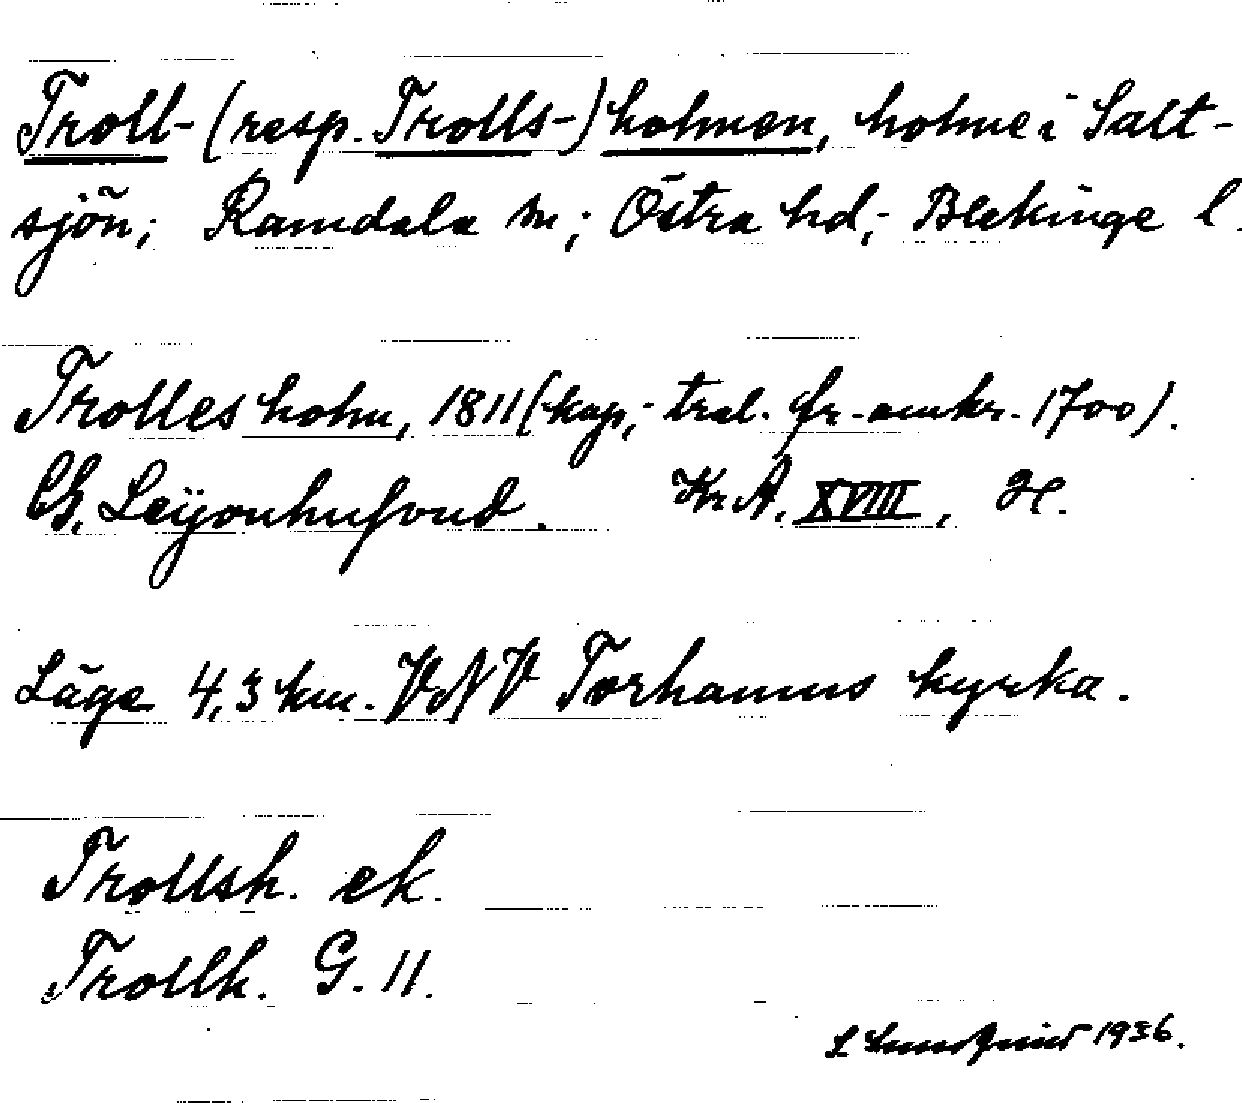 Troll- (resp. Trolls-) holmen, holme i Salt-
sjön; Ramdala sn; Östra hd; Blekinge l.
Trolles holm, 1811 (kop; trol. fr. omkr. 1700).
Leijonhufvud. Kr A. XVIII,
Läge 4,3 km. VNV Torhamns kyrka.
Trollsh. ek.
Trollh. G. 11.
1936.